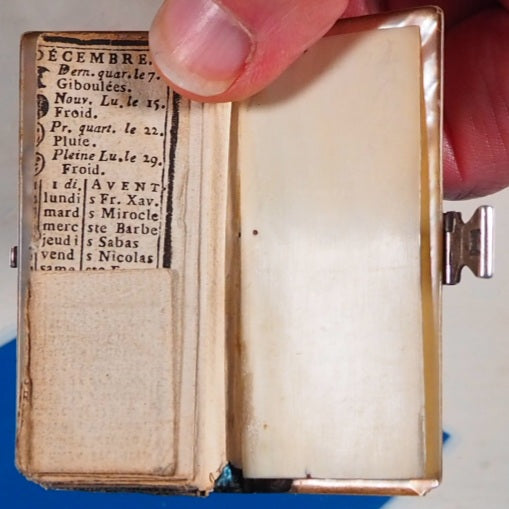 DÉCEMBRE.
Dern. quar. le 7.
Giboulées.
Nouv. Lu. le 15.
Froid.
Pr. quart. le 22.
Pluie.
Pleine Lu. le 29.
Froid.
1 di. AVENT
lundi s Fr. Xav.
mard s Mirocle
merc ste Barbe
jeudi s Sabas
vend s Nicolas
same